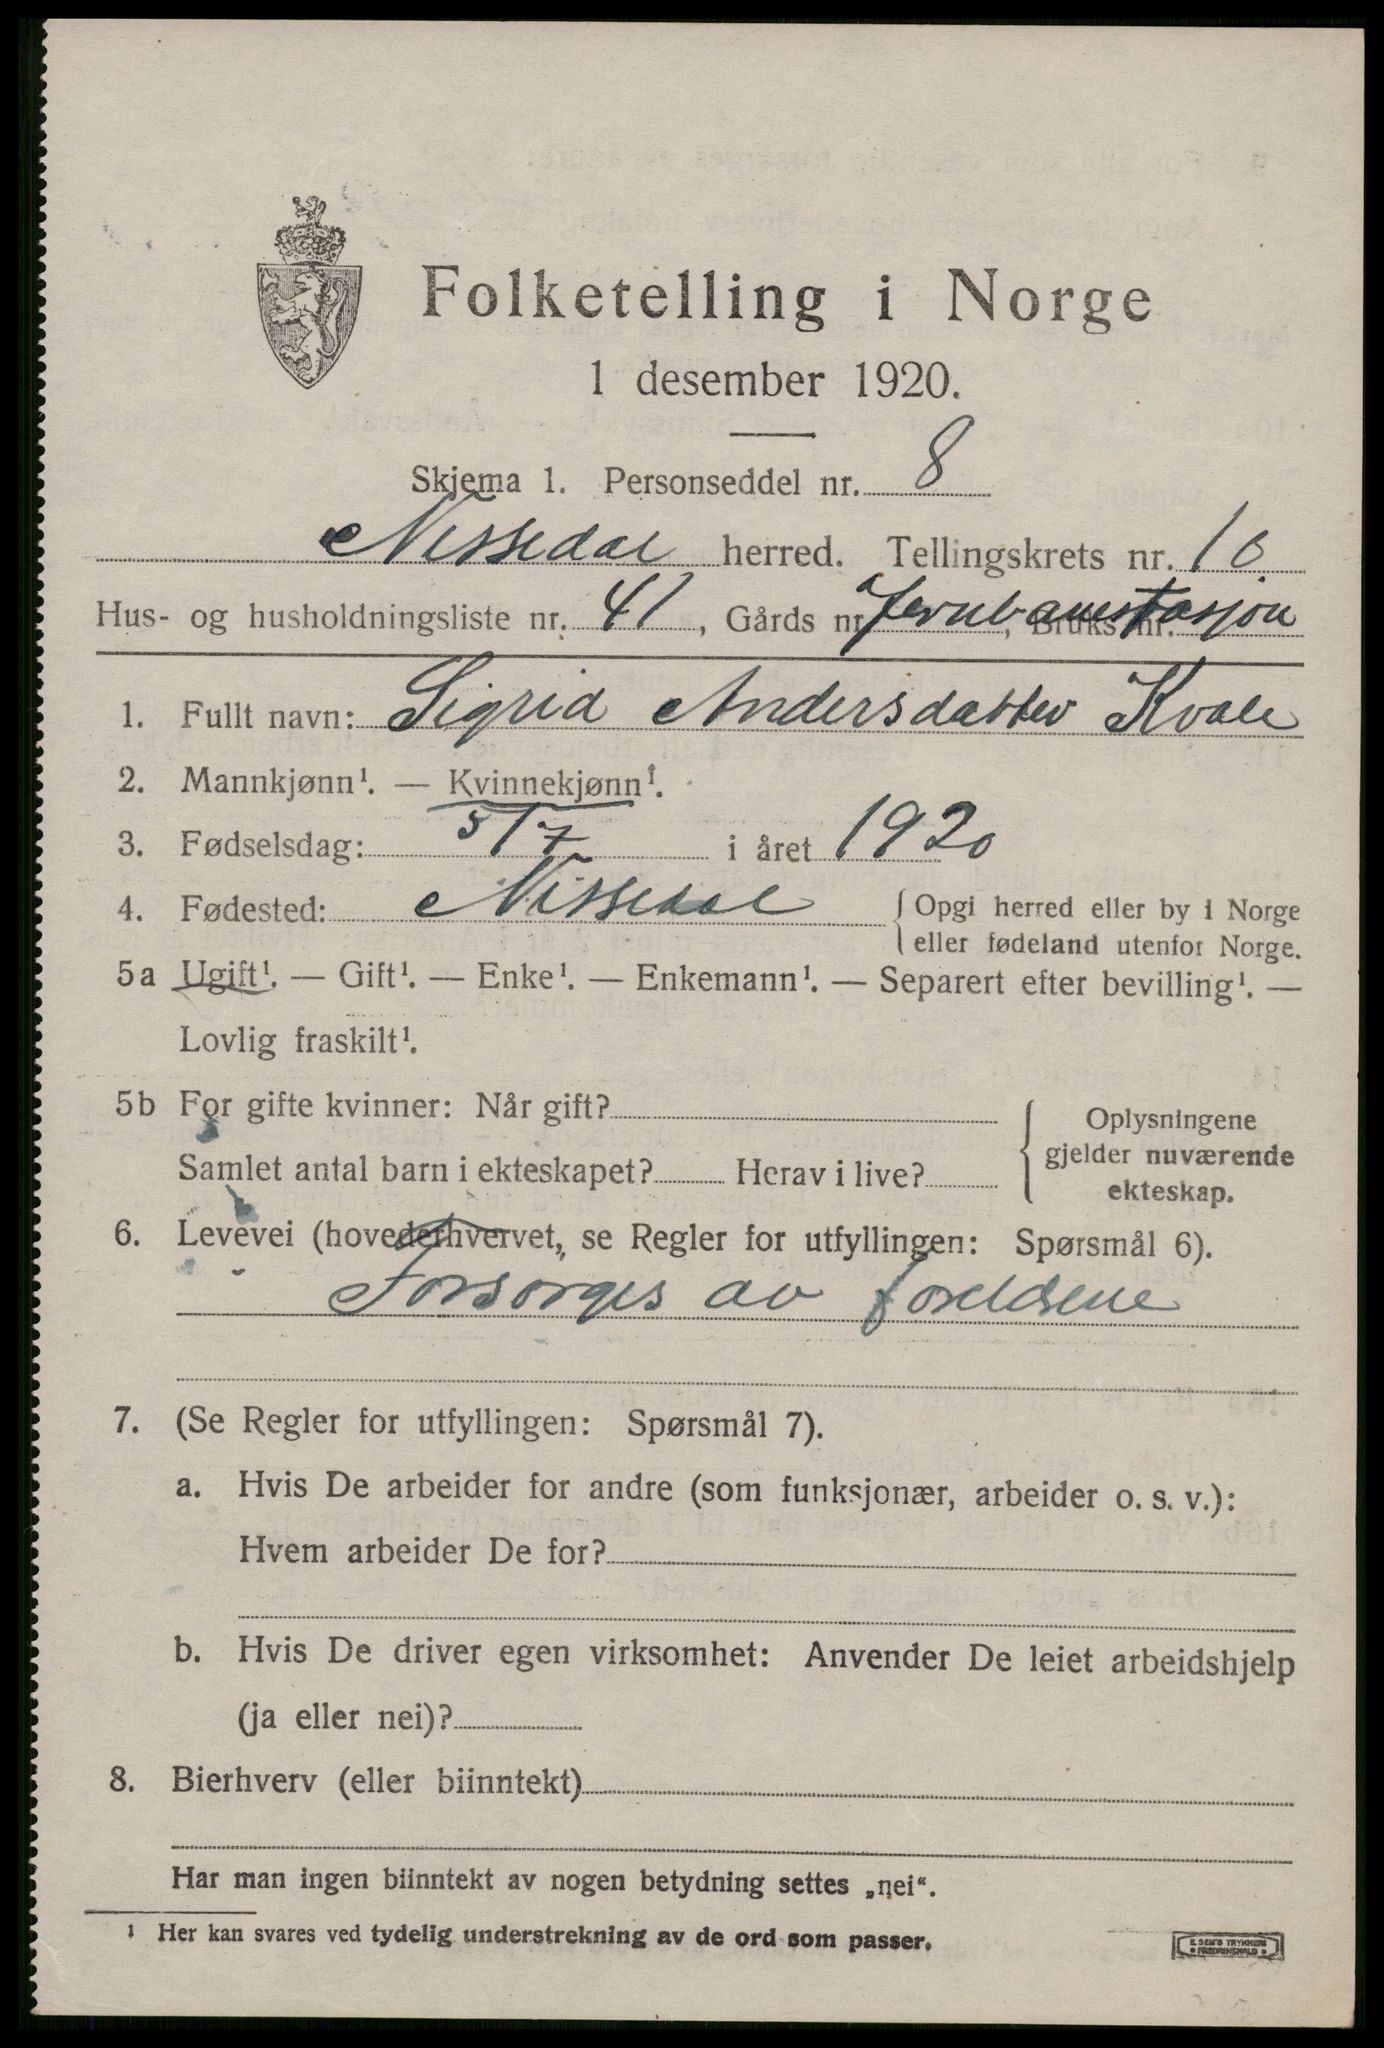 Folketelling i Norge
1 desember 1920.
Skjema 1. Personseddel nr. 8
Nissedal herred. Tellingskrets nr. 10
Hus- og husholdningsliste nr. 41, Gårds nr. Jernbanestasjon, Bruks nr.
1. Fullt navn: Sigrid Andersdatter Kvale
2. Mannkjønn¹. — Kvinnekjønn¹.
3. Fødselsdag: 5/7 i året 1920
4. Fødested: Nissedal { Opgi herred eller by i Norge
eller fødeland utenfor Norge.
5a Ugift¹. — Gift¹. — Enke¹. — Enkemann¹. — Separert efter bevilling¹. —
Lovlig fraskilt¹.
5b For gifte kvinner: Når gift?
Samlet antal barn i ekteskapet? Herav i live?
Oplysningene
gjelder nuværende
ekteskap.
6. Levevei (hovederhvervet, se Regler for utfyllingen: Spørsmål 6).
Forsorges av foreldrene
7. (Se Regler for utfyllingen: Spørsmål 7).
a. Hvis De arbeider for andre (som funksjonær, arbeider o. s. v.):
Hvem arbeider De for?
b. Hvis De driver egen virksomhet: Anvender De leiet arbeidshjelp
(ja eller nei)?
8. Bierhverv (eller biinntekt)
Har man ingen biinntekt av nogen betydning settes „nei“.
¹ Her kan svares ved tydelig understrekning av de ord som passer.
E. SEM'S TRYKKERI
FREDRIKSHALD